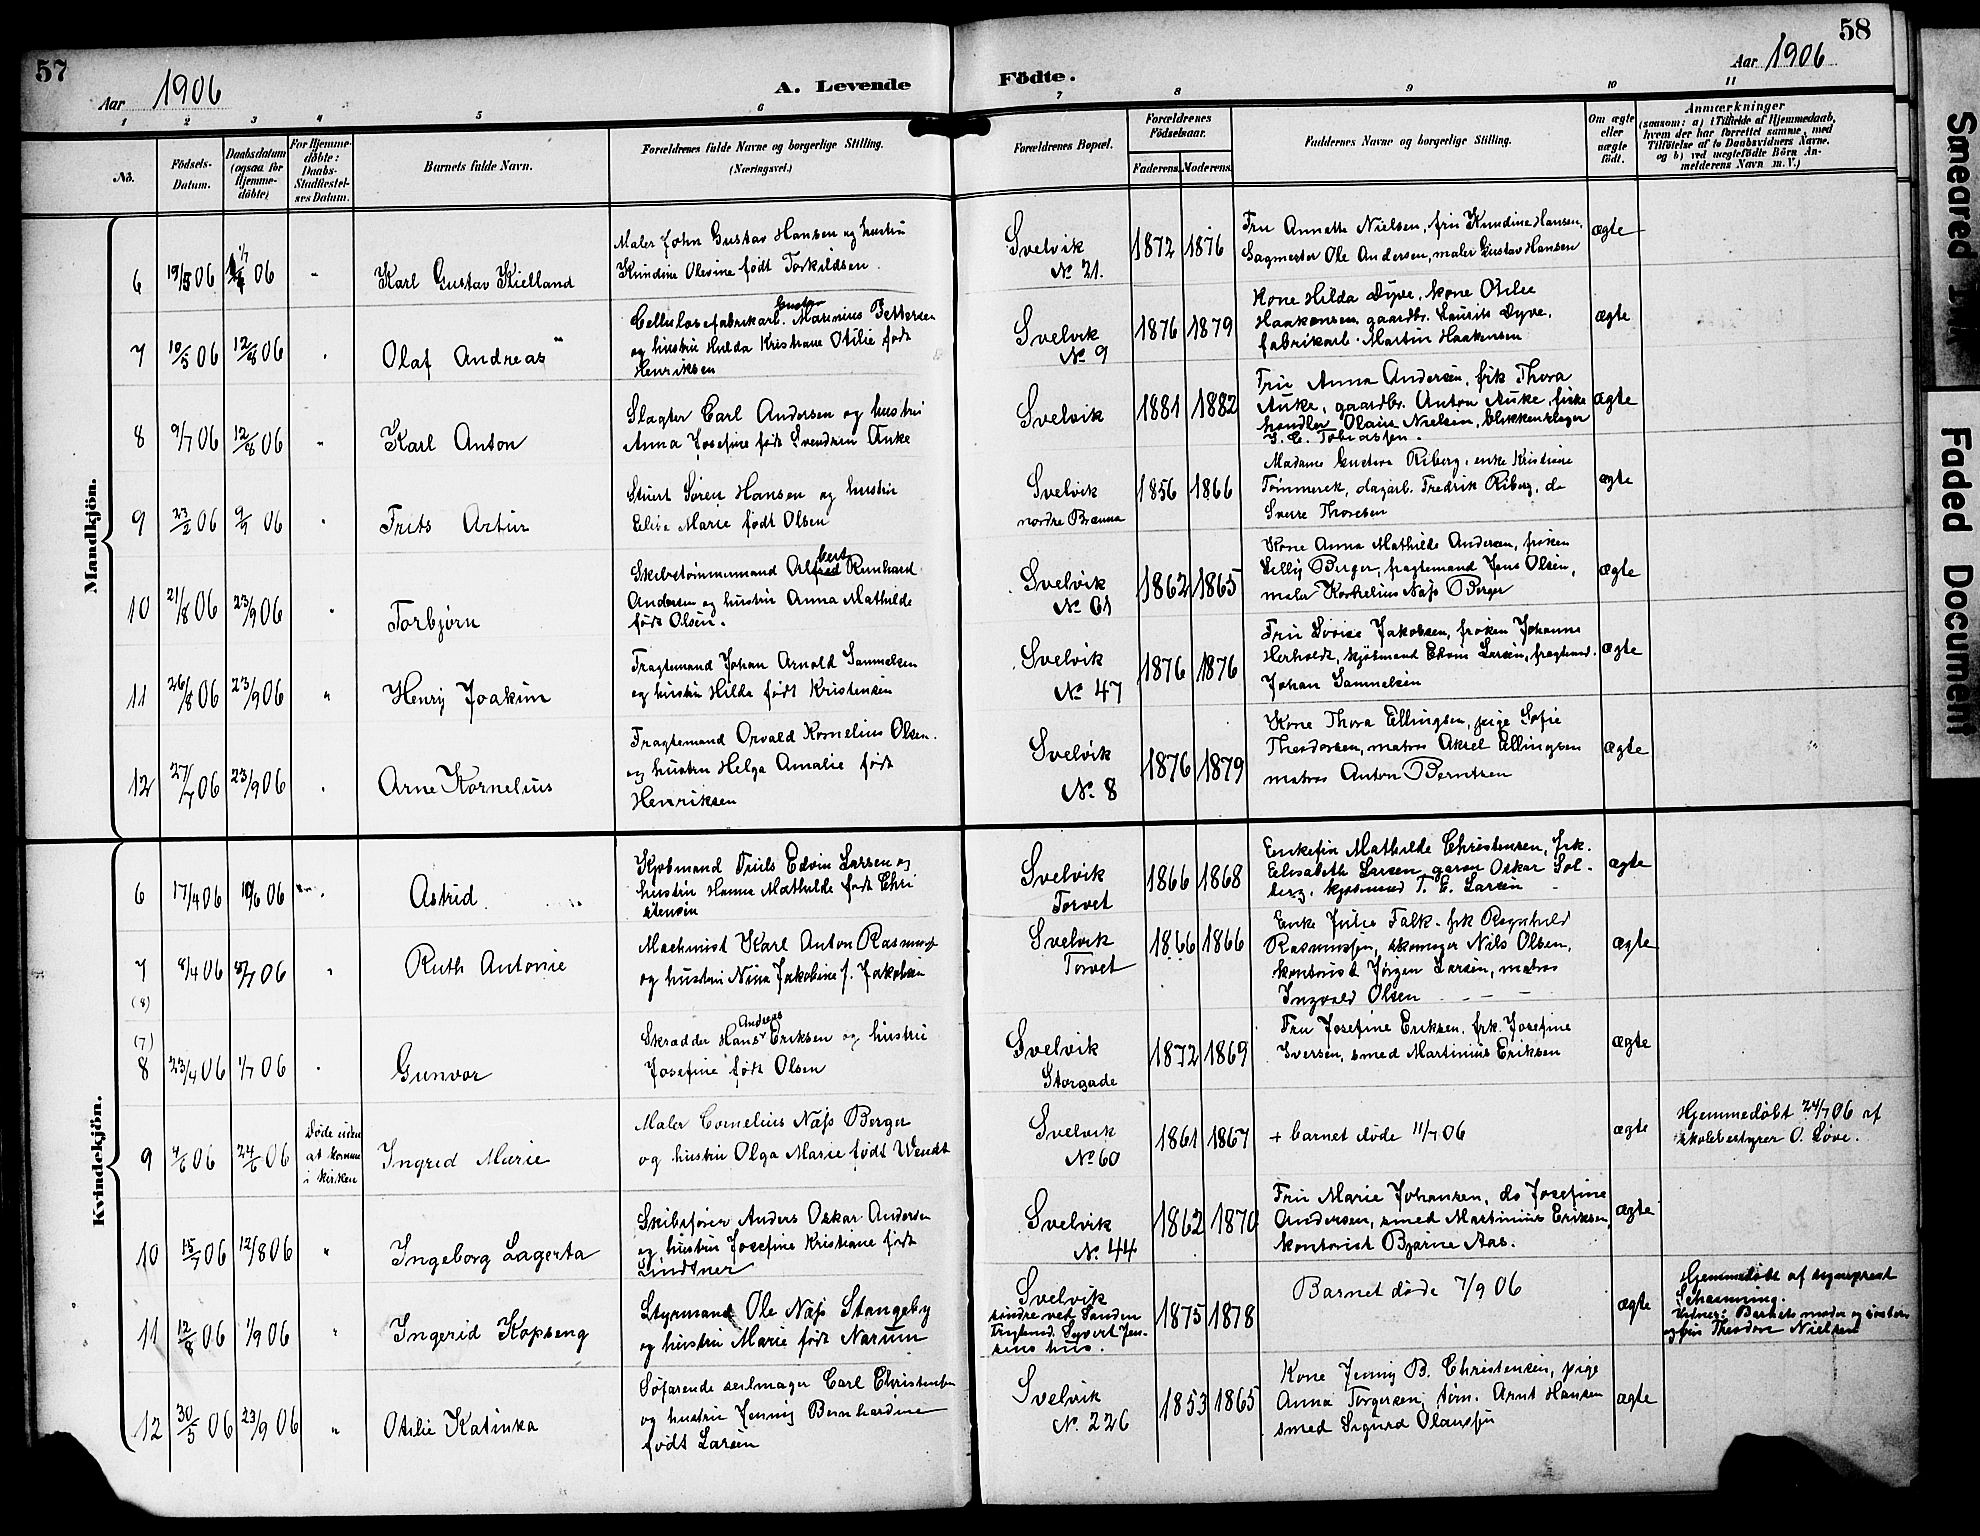 57
Aar 1906
A. Levende
Födte.
58
Aar 1906
1 2 3 4 5 6 7 8 9 10 11
No.
Födsels-
Datum.
Daabsdatum
(ogsaa for
Hjemme-
döbte)
For Hjemme-
döbte:
Daabs-
Stadfæstel-
ses Datum.
Barnets fulde Navn.
Forældrenes fulde Navne og borgerlige Stilling.
(Næringsvei.)
Forældrenes Bopæl.
Forældrenes
Födselsaar.
Faderens. Moderens.
Faddernes Navne og borgerlige Stilling.
Om ægte
eller
uægte
födt.
Anmærkninger
(saasom: a) i Tilfælde af Hjemmedaab,
hvem der har forrettet samme, med
Tilföielse af to Daabsvidners Navne,
og b) ved uægtefödte Börn An-
melderens Navn m. V.)
Mandkjön.
6 19/5 06 1/7 06 " Karl Gustav Kielland
Maler John Gustav Hansen og hustru
Kundine Olevine født Torkildsen.
Svelvik
No. 21.
1872 1876
Fru Annette Nielsen, fru Kundine Hansen,
Sagmester Ole Andersen, maler Gustav Hansen
ægte
7 10/5 06 12/8 06 " Olaf Andreas
Cellulosefabrikarb. Gustav Marinius Pettersen
og hustru Hulda Kristiane Otilie født
Henriksen
Svelvik
No. 9
1876 1879
Kone Hilda Dyve, kone Otilie
Haakonsen, gaardbr. Laurits Dyve,
fabrikarb. Martin Haakonsen
ægte
8 9/7 06 12/8 06 " Karl Anton
Slagter Carl Andersen og hustru
Anna Josefine født Svendsen Auke
Svelvik
1881 1882
Fru Anna Andersen, frk Thora
Auke, gaardbr. Anton Auke, fiske
handler Olaus Nielsen, blikkenslager
Tobiassen.
ægte
9 23/2 06 9/9 06 " Frits Artur
Stuert Søren Hansen og hustru
Elise Marie født Olsen
Svelvik
nordre Brænna
1856 1866
Madame Gustava Riberg, enke Kristiane
Tømmerek, dagarb. Fredrik Riberg, do
Sverre Thoresen
ægte
10 21/8 06 23/9 06 " Torbjørn
Skibstømmermand Albert Reinhard
Andersen og hustru Anna Mathilde
født Olsen.
Svelvik
No. 61
1862 1865
Kone Anna Mathilde Andersen, frøken
Lilly Berger, fragtemand Jens Olsen,
maler Kornelius Næss Berger
ægte
11 26/8 06 23/9 06 " Henry Joakim
Fragtemand Johan Arnold Samuelsen
og hustru Hilda født Kristensen
Svelvik
No. 47
1876 1876
Fru Lovise Jakobsen, frøken Johanne
Herholdt, kjøbmand Edvin Larsen, fragtemd.
Johan Samuelsen
ægte
12 27/7 06 23/9 06 " Arne Kornelius
Fragtemand Orvald Kornelius Olsen.
og hustru Helga Amalie født
Henriksen
Svelvik
No. 8
1876 1879
Kone Thora Ellingsen, pige Sofie
Theodorsen, matros Aksel Ellingsen
matros Anton Berntsen
ægte
Kvindekjön.
6 17/4 06 10/6 06 " Astrid
Kjøbmand Truls Edvin Larsen og
hustru Hanna Mathilde født Chri
stensen
Svelvik
Torvet
1866 1868
Enkefru Mathilde Christensen, frk.
Elisabeth Larsen, garver Oskar Sol-
berg, kjøbmand T. E. Larsen
ægte
7 8/4 06 8/7 06 " Ruth Antonie
(8)
Machinist Karl Anton Rasmussen
og hustru Nina Jakobine f. Jakobsen
Svelvik
Torvet
1866 1866
Enke Julie Falk. frk Ragnhild
Rasmussen, skomager Nils Olsen,
kontorist Jørgen Larsen, matros
Ingvald Olsen
ægte
(7)
8 23/4 06 1/7 06 " Gunvor
Skrædder Hans Andreas Eriksen og hustru
Josefine født Olsen
Svelvik
Storgade
1872 1869
Fru Josefine Eriksen, frk. Josefine
Iversen, smed Martinius Eriksen
ægte
9 4/6 06 24/6 06 Døde uden
at komme
i kirken
Ingrid Marie
Maler Cornelius Næss Berger
og hustru Olga Marie født Wendt
Svelvik
No 60
1861 1867
+ barnet døde 11/7 06
ægte
Hjemmedøbt 24/7 06 af
skolebestyrer O. Løve.
10 15/7 06 12/8 06 " Ingeborg Lagerta
Skibsfører Anders Oskar Andersen
og hustru Josefine Kristiane født
Lindtner
Svelvik
No. 44
1862 1870
Fru Marie Johansen, do Josefine
Andersen, smed Martinius Eriksen
kontorist Bjarne Aas.
ægte
11 12/8 06 1/9 06 " Ingerid Kopseng
Styrmand Ole Næss Stangeby
og hustru Marie født Narum
Svelvik
søndre ved Sanden
Fragtemd. Syvert Jen-
sens hus.
1875 1878
Barnet døde 7/9 06
ægte
Hjemmedøbt af sogneprest
Schanning.
Vidner: Barnets moder og
Theodor Nielsen
12 30/5 06 23/9 06 " Otilie Katinka
Søfarende seilmager Carl Christensen
og hustru Jenny Bernhardine
født Larsen
Svelvik
No. 226
1853 1865
Kone Jenny B. Christensen, pige
Anna Torgersen, tøm. Arnt Hansen
smed Sigurd Olaussen
ægte
Smeared Ink
Faded Document